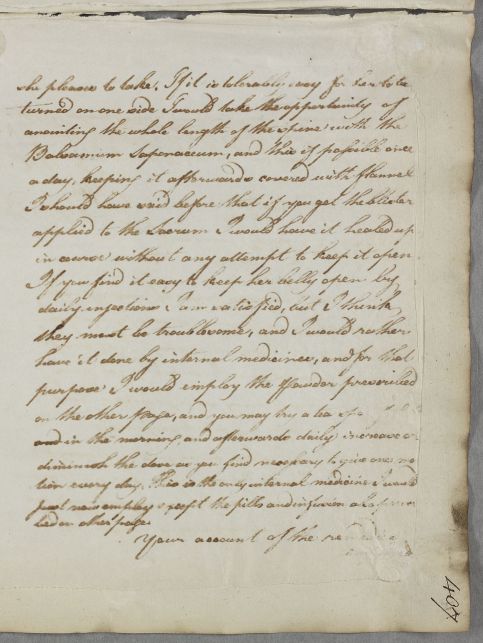 she pleases to take. If it is tolerably easy for her to be
turned on one side I would take the opportunity of
anointing the whole length of the spine with the
Balsamum Saponaceum, and this if possible once
a day, keeping it afterwards covered with flannel
I should have said before that if you get the blister
applied to the Sacrum I would have it healed up
in course without any attempt to keep it open.
If you find it easy to keep her belly open by
daily injections I am satisfied, but I think
they must be troublesome, and I would rather
have it done by internal medicines, and for that
purpose I would employ the Powder prescribed
on the other Page, and you may try a tea
and in the morning, and afterwards daily increase or
diminish the dose as you find necessary to give one mo
tion every day. This is the only internal medicine I would
just now employ except the pills and infusion
on other page.
Your account of the
404